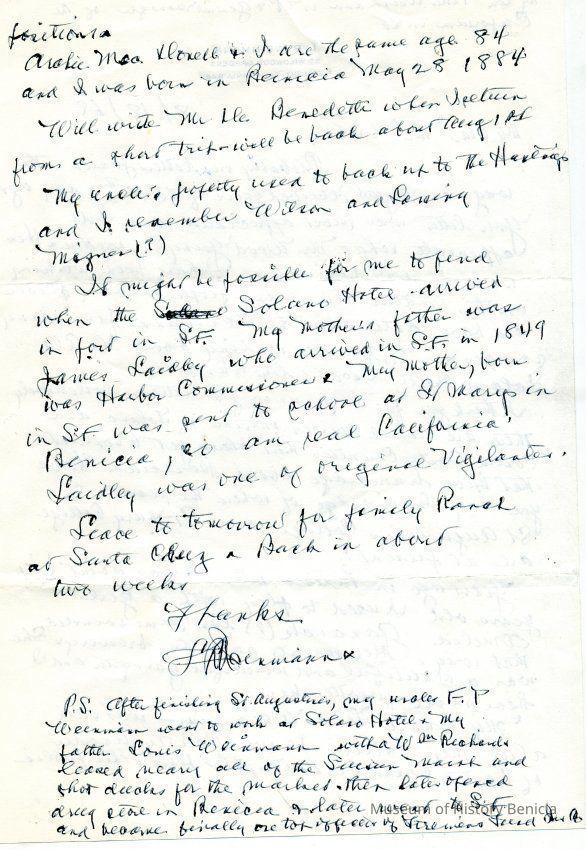 positions
Archie Mac Donell & I are the same age 84
and I was born in Benicia May 28 1884
Will write Mr De Benedetti when I return
from a short trip - will be back about Aug 1st
My uncle's property used to back up to the Hastings
and I remember Wilson and Lansing
Mizner (?)
It might be possible for me to find
when the Solano Hotel arrived
in port in S.F. My Mother's father was
James Laidley who arrived in S.F. in 1849
was Harbor Commissioner & My Mother, born
in S.F. was sent to school at St Marys in
Benicia, so am real California
Laidley was one of original Vigilantes.
Leave tomorrow for family Ranch
at Santa Cruz & Back in about
two weeks
Thanks
Weinmann
P.S. After finishing St Augustines, my uncle F.P
Weinmann went to work at Solano Hotel & my
father Louis Weinmann with a Wm Richards
leased nearly all of the Suisun Marsh and
shot ducks for the market - then later opened
drug store in Benicia & later went to S.F.
and became finally one top officer of Firemens Fund Ins Co
Museum of History Benicia